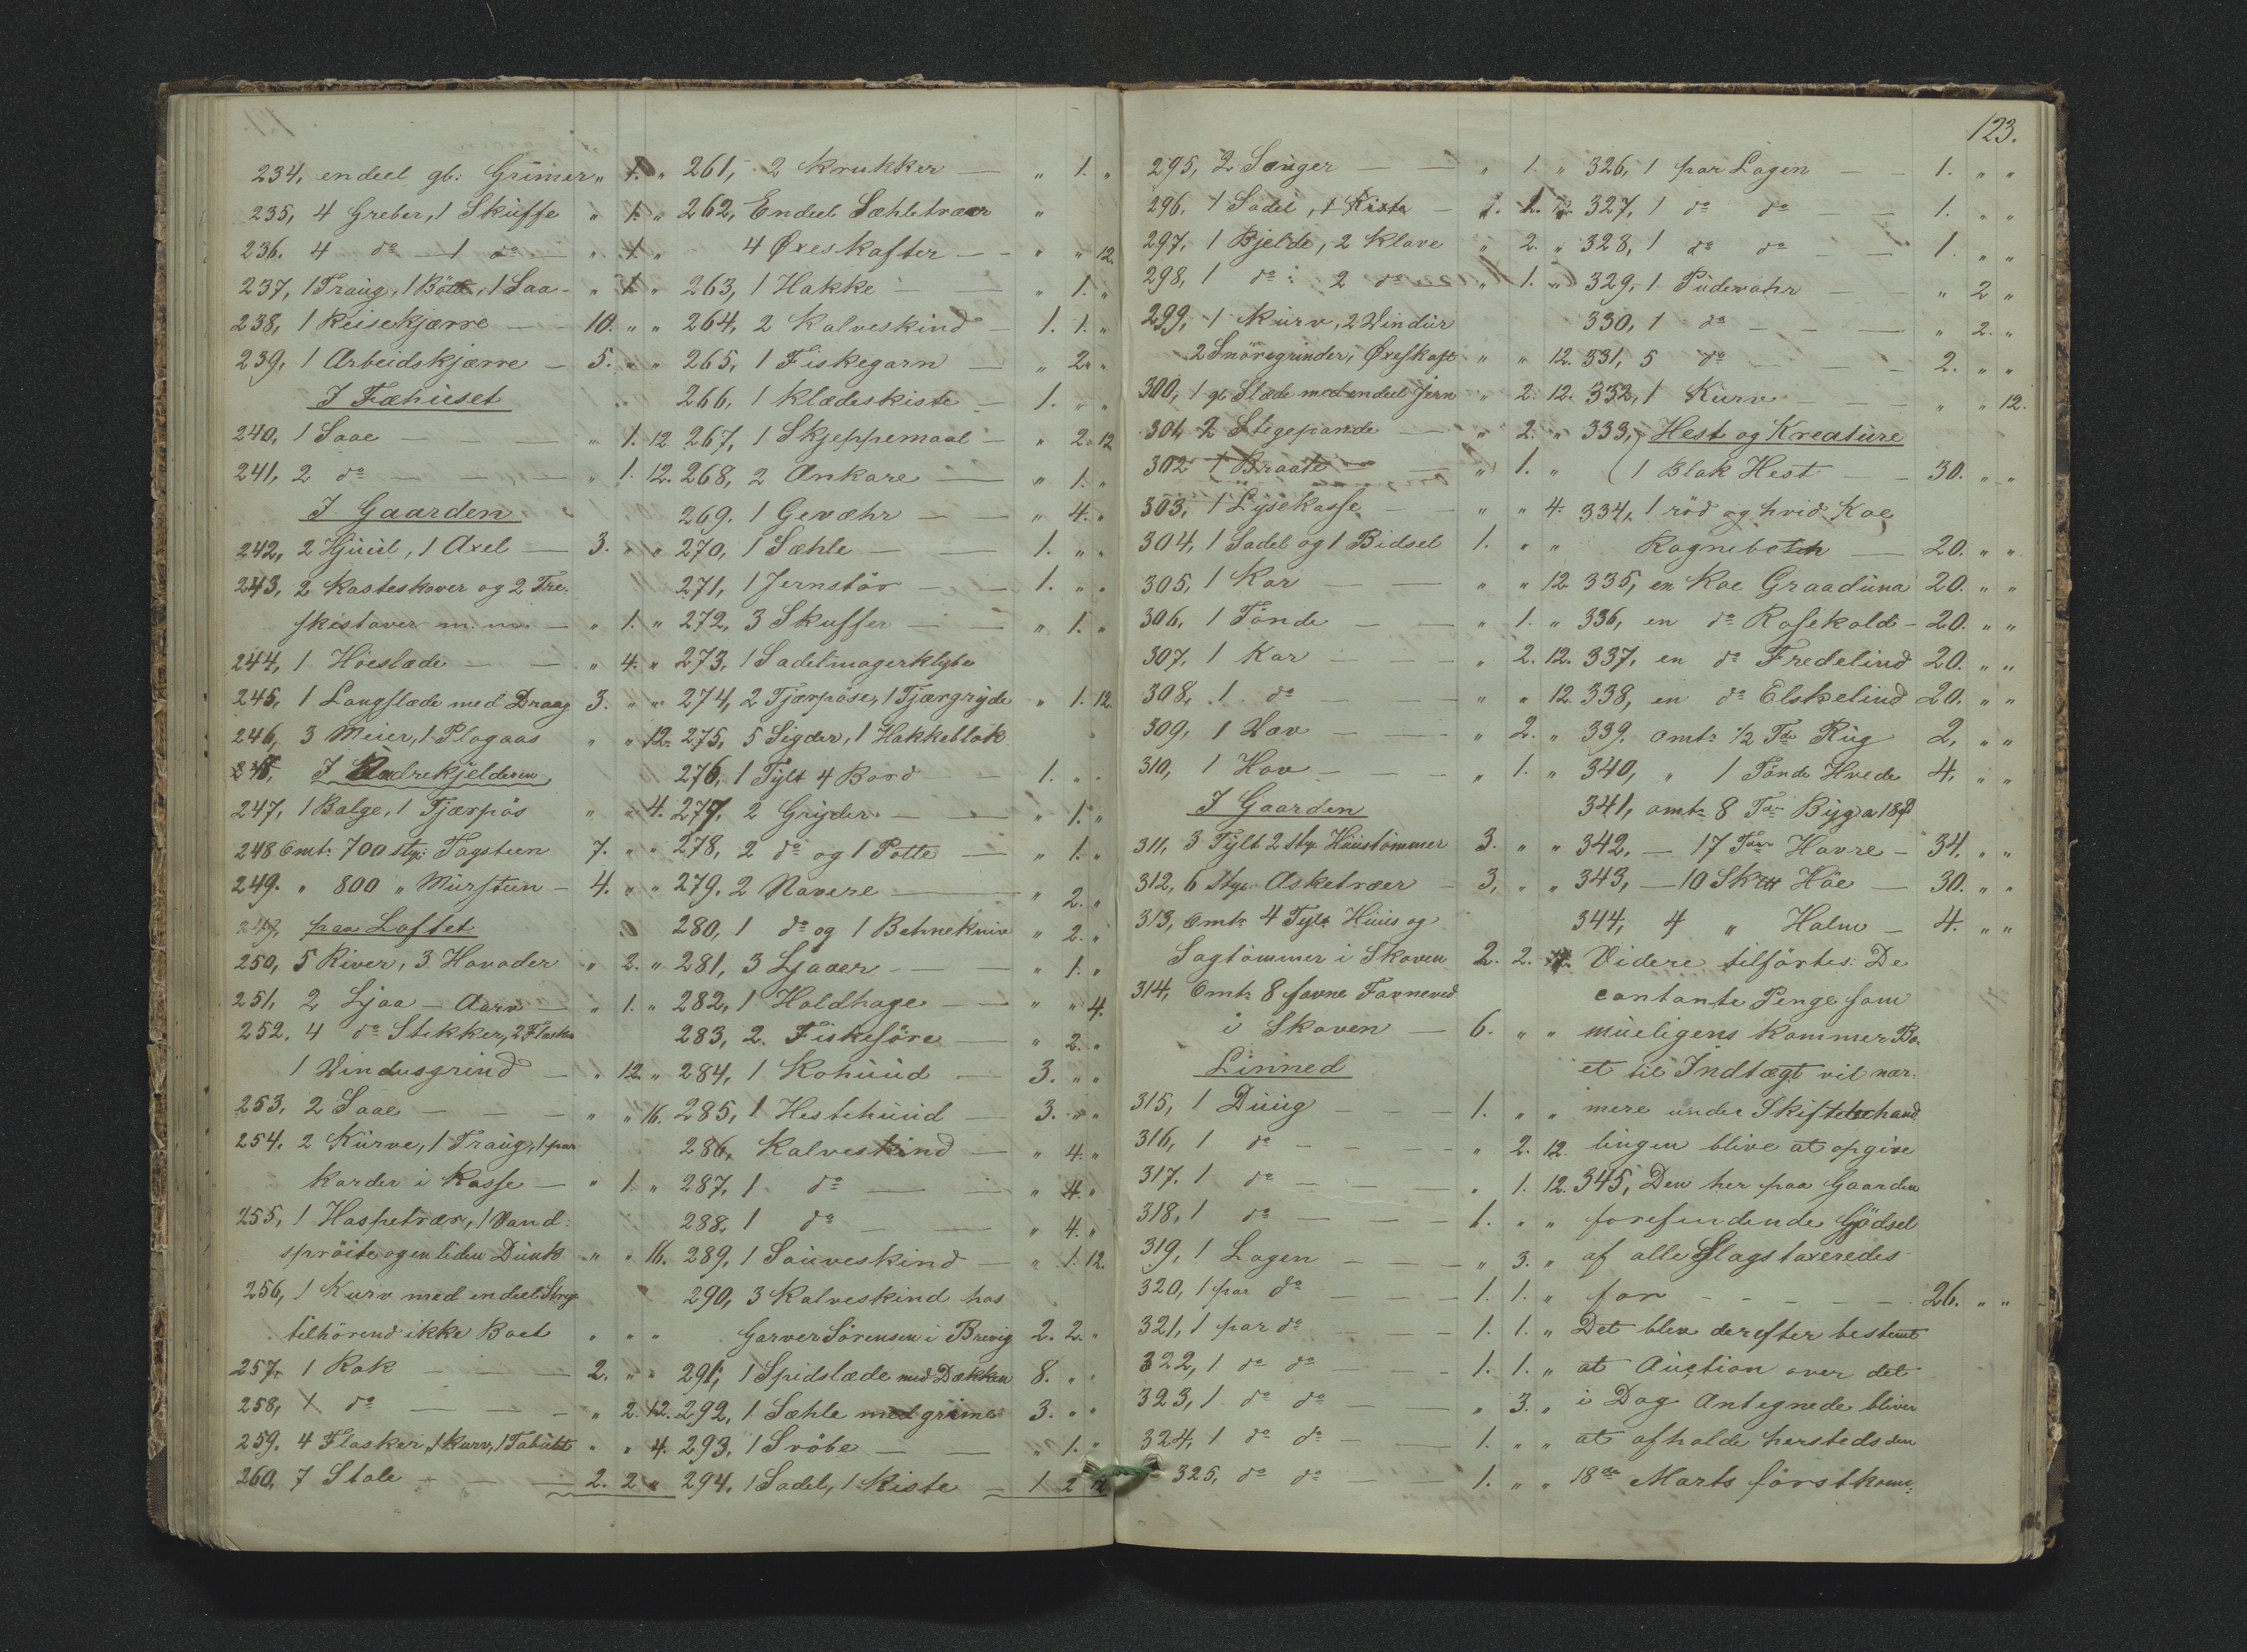 234, endeel gb: Grimer " 1. "
235, 4 Greber, 1 Skuffe " 1. "
236. 4 do — 1 do — " 1 "
237, 1 Traug, 1 Bøtte, 1 Saa - " 1. "
238, 1 Reisekjærre — 10. " "
239, 1 Arbeidskjærre — 5. " "
I Fæhuset
240, 1 Saae — — — " 1. 12
241, 2 do — — — " 1. 12.
I Gaarden
242, 2 Hjuul, 1 Axel — 3. " "
243, 2 Kasteskover og 2 Tre-
skestaver m. m. — " 1. "
244, 1 Höeslæde — — " 4. "
245, 1 Langslæde med Draag 3. " "
246, 3 Meier, 1 Plogaas " " 12.
I Andrekjelderen
247, 1 Balge, 1 Tjærpös " " 4.
248 Omtr 700 sty: Tagsteen 7. " "
249. " 800 " Murstein — 4. " "
paa Loftet
250, 5 River, 3 Havader " 2. "
251, 2 Ljaa — Aarv — " 1. "
252. 4 do Stikker, 2 Flasker
1 Vindusgrind — " 12. "
253, 2 Saae — — — " " 16.
254. 2 Kurve, 1 Traug, 1 par
Karder i Kasse — " 1. "
255, 1 Haspetræe, 1 Vand:
spröite og en liden Dunk " " 16.
256, 1 Kurv med endeel
tilhörend ikke Boet " " "
257, 1 Rok — — — 2. " "
258, 1 do — — — " 2. 12.
259. 4 Flasker, 1 Kurv, 1 Taburet " " 4.
260, 7 Stole — — — 2. 2 "
261, 2 Krukker — " 1. "
262, Endeel Sæhletræer "
4 Øxeskafter — — " " 12.
263, 1 Hakke — — " 1. "
264, 2 Kalveskind — 1. 1. "
265, 1 Fiskegarn — " 2. "
266, 1 Klædeskiste — 1. " "
267, 1 Skjeppemaal — " 2. 12
268, 2 Ankare — " 1. "
269. 1 Geværhr — — " 4. "
270, 1 Sæhle — — 1. " "
271, 1 Jernstör — — 1. " "
272, 3 Skuffer — — " 1. "
273, 1 Sadelmagerklybe
274, 2 Tjærpöser, 1 Tjærgryde " 1. 12.
275, 5 Sigder, 1 Hakkeblok "
276, 1 Tylt 4 Bord — 1. " "
277, 2 Gryder — — " 1. "
278, 2 do og 1 Potte — " 1. "
279. 2 Navere — " 2. "
280, 1 do og 1 Bahnekniv " 2. "
281, 3 Ljaaer — — " 1. "
282, 1 Holdhage — — " " 4.
283, 2. Fiskesöre — " 2. "
284, 1 Kohuud — 3. " "
285, 1 Hestehuud — 3. " "
286, Kalveskind — " 4. "
287, 1 do — — " 4. "
288, 1 do — — " 4. "
289, 1 Saueskind — " 1. 12.
290, 3 Kalveskind hos
Garver Sörensen i Brevig 2. 2. "
291, 1 Spidslæde med Dækken 8. " "
292, 1 Sæhle med grime 3. " "
293, 1 Svöbe — — " 1. "
294. 1 Sadel, 1 Kiste — 1 2 12
123.
295, 2 Senger — — " 1. "
296. 1 Sadel, 1 Kiste — 1. 2. 12.
297, 1 Bjelde, 2 Klave " 2. "
298, 1 do: 2 do " 1. "
299, 1 Kurv, 2 Vindur
2 Snöregrinder, Øxeskaft " " 12.
300, 1 gb Slæde med endeel Jern " 2. 12.
301, 2 Stegepande — " 2. "
302 1 Braate — — " 1. "
303, 1 Lysekasse — — " " 4.
304, 1 Sadel og 1 Bidsel 1. " "
305, 1 Kar — — " " 12
306, 1 Tönde — — " 1. "
307, 1 Kar — — — " 2. 12.
308, 1 do — — — " " 12.
309, 1 Hav — — — " 2. "
310, 1 Hov — — — " 1. "
I Gaarden
311, 3 Tylt 2 sty. Huustömmer 3. " "
312, 6 sty. Asketræer — 3, " "
313, Omtr 4 Tylt Huus og
Sagtömmer i Skoven 2. 2. 12.
314, Omtr 8 favne Favneved
i Skoven — 6. " "
Linned
315, 1 Duug — — — 1. " "
316, 1 do — — — " 2. 12.
317. 1 do — — — " 1. 12.
318, 1 do — — — 1. " "
319, 1 Lagen — — — " 3. "
320, 1 par do — — — 1. 1. "
321, 1 par do — — 1. 1. "
322, 1 do do — — 1. 1. "
323, 1 do do — — " 3. "
324, 1 do do — — 1. " "
325, do do — — 1. " "
326, 1 par Lagen — — 1. " "
327, 1 do do — — 1. " "
328, 1 do do — — 1. " "
329, 1 Pudevahr — — " 2 "
330, 1 do — — — " 2. "
331, 5 do — — — 2. " "
332, 1 Kurv — — — " " 12.
333, Hest og Kreature
1 Blak Hest — — 30. " "
334, 1 röd og hvid Koe
Ragneboten — 20. " "
335, en Koe Graaduna 20. " "
336, en do Rosekold — 20. " "
337, en do Fredelind 20. " "
338, en do Elskelind 20. " "
339. omtr 1/2 Tde Rug 2, " "
340, " 1 Tönde Hvede 4, " "
341, omtr 8 Tdr Byg a
342, — 17 Tdr Havre — 34, " "
343, — 10 Sk℔ Höe — 30. " "
344, 4 " Halm — 4. " "
Videre tilförtes: De
contante Penge som
mueligens kommer Bo-
et til Indtægt vil nær-
mere under Skiftebehand
lingen blive at opgive
345, Den her paa Gaarden
forefindende Gjödsel
af alle Slags taxeredes
for — — — — — 26. " "
Det blev derefter bestemt
at Auction over det
i Dag Antegnede bliver
at afholde hersteds den
18de Marts förstkom: